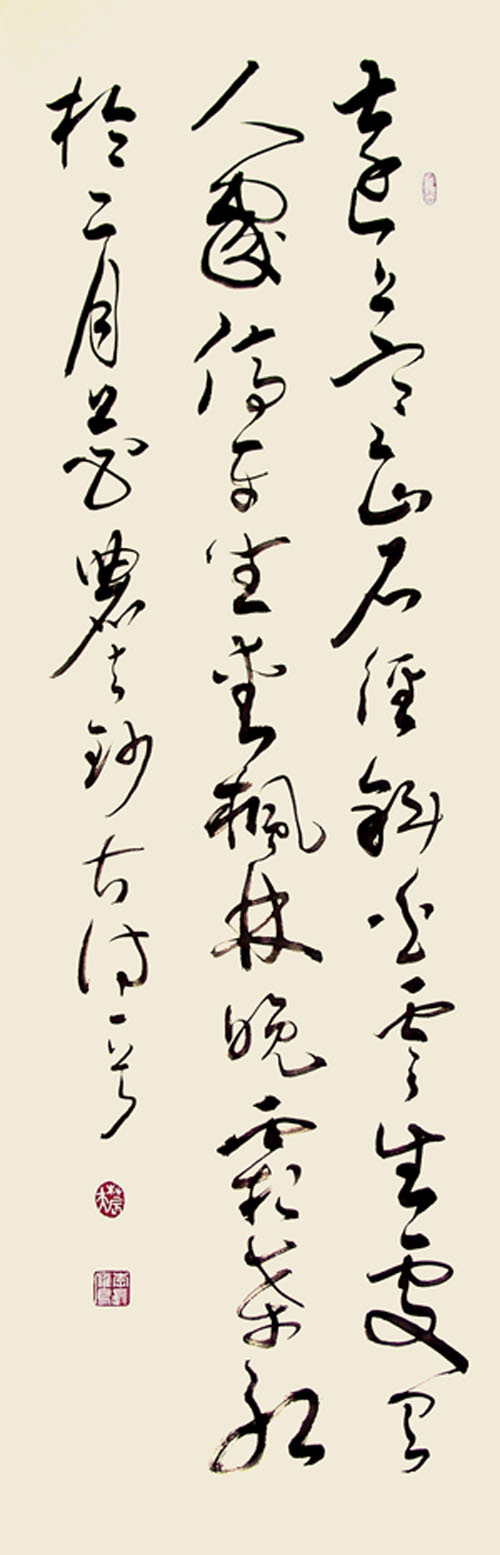 遠上寒山石徑斜白雲生處有
人家停車坐愛楓林晚霜葉紅
於二月花農鈔古詩一首